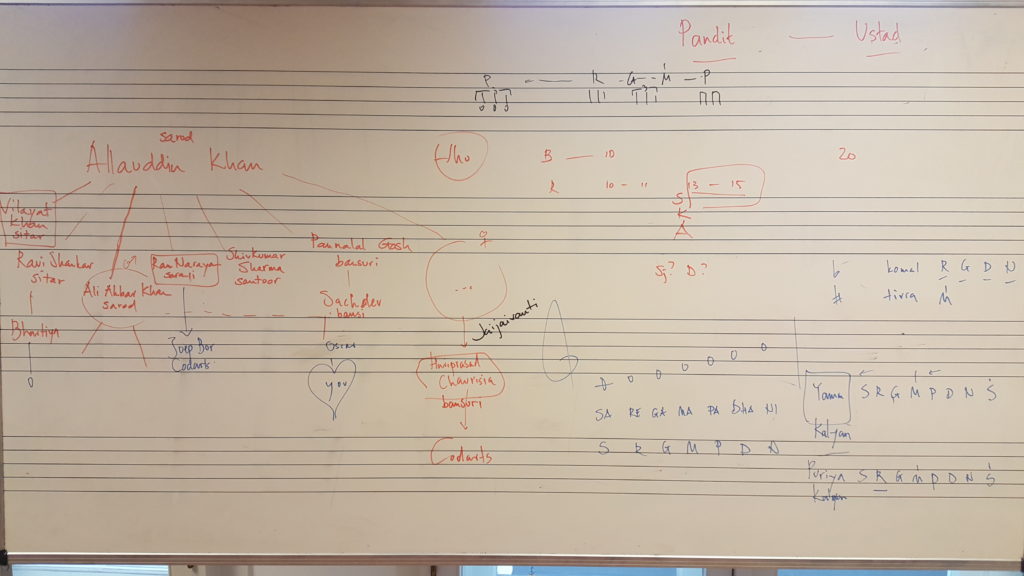 Pandit — Ustad
P — — — R - G - Ḿ — P
sarod
Allauddin Khan
f/ho
B — 10
R 10 - 11
13 - 15
S
K
A
20
Vilayat
Khan
sitar
Ravi Shankar
sitar
Bhartiya
♂
Ali Akbar Khan
sarod
Ram Narayan
sarangi
Joep Bor
Codarts
Shivkumar
Sharma
santoor
Pannalal Gosh
bansuri
Sachdev
bansi
Oscar
you
♀
...
Jaijaivanti
Hariprasad
Chaurisia
bansuri
Codarts
S? D?
b komal R G D N
# tivra Ḿ
SA RE GA MA PA DHA NI
S R G M P D N
Yaman S R G Ḿ P D N Ṡ
Kalyan
Puriya S R G Ḿ P D N Ṡ
Kalyan